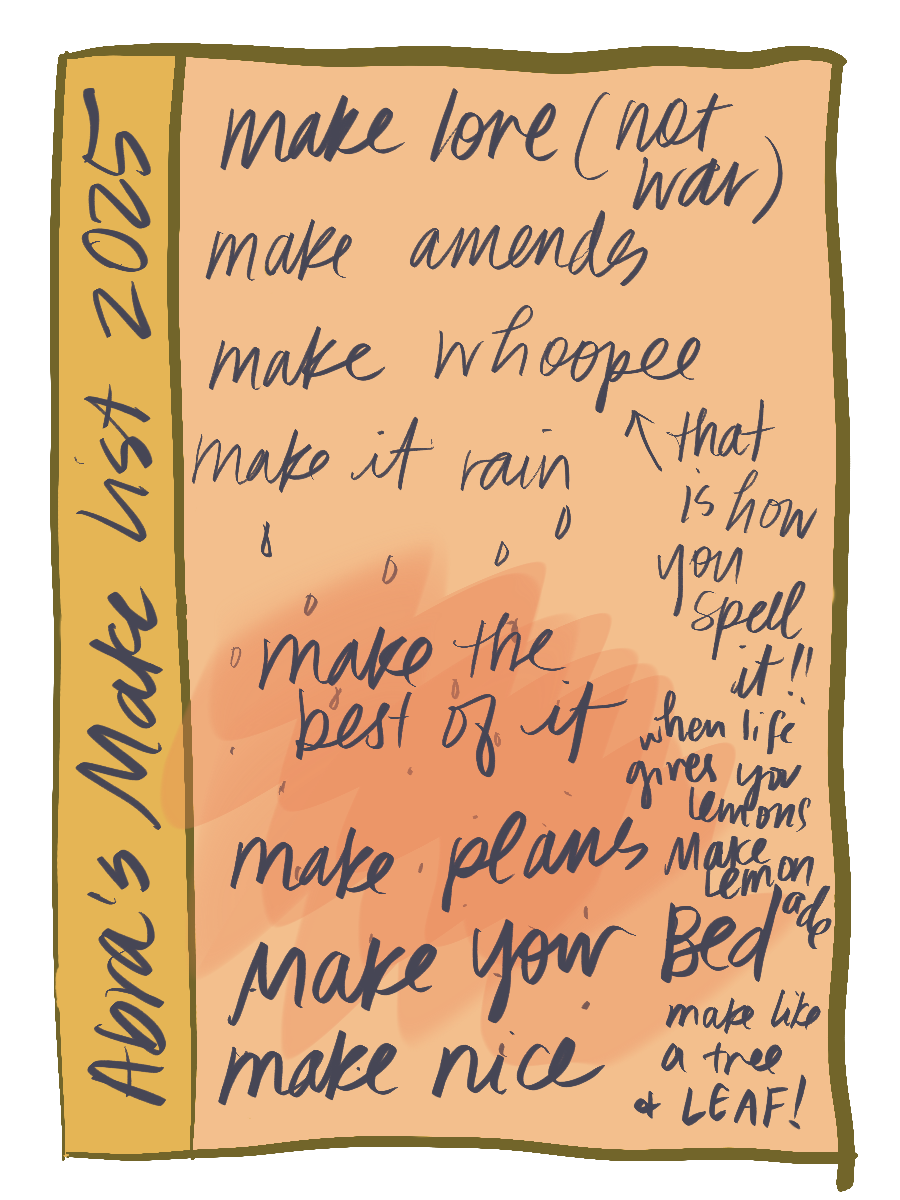 Abra's Make list 2025
make love (not
war)
make amends
make whoopee
that
is how
you
spell
it!!
make it rain
make the
best of it
when life
gives you
lemons
Make
Lemon
ade
make plans
Make your Bed
make nice
make like
a tree
& LEAF!